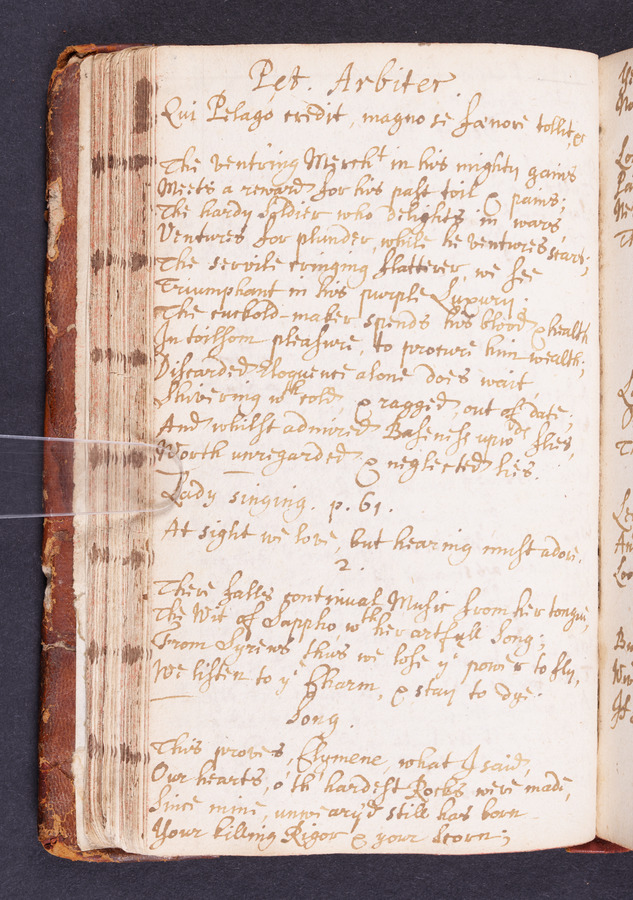 Pet. Arbiter.
Qui Pelago credit, magno se fænore tollit, &
The ventring Mercht in his mighty gains
Meets a reward for his past toil & pains;
The hardy Soldier who delights in wars,
Ventures for plunder, while he ventures scars;
The servile cringing flatterer, we see
Triumphant in his purple Luxury:
The cuckold-maker spends his blood & health
In toilsom pleasure, to procure him wealth;
Discarded Eloquence alone does wait,
Shivering wth cold & ragged, out of date;
And whilst admired Baseness upwds flies,
Worth unregarded & neglected lies.
Lady singing. p. 61.
At sight we love, but hearing must adore.
2.
There falls continual Music from her tongue,
The Wit of Sappho wth her artfull Song;
From Syrens thus we lose ye power to fly,
We listen to ye Charm, & stay to dye.
Song.
This proves, Clymene, what I said,
Our hearts o'th hardest Rocks were made,
Since mine, unweary'd still has born
Your killing Rigor & your Scorn;